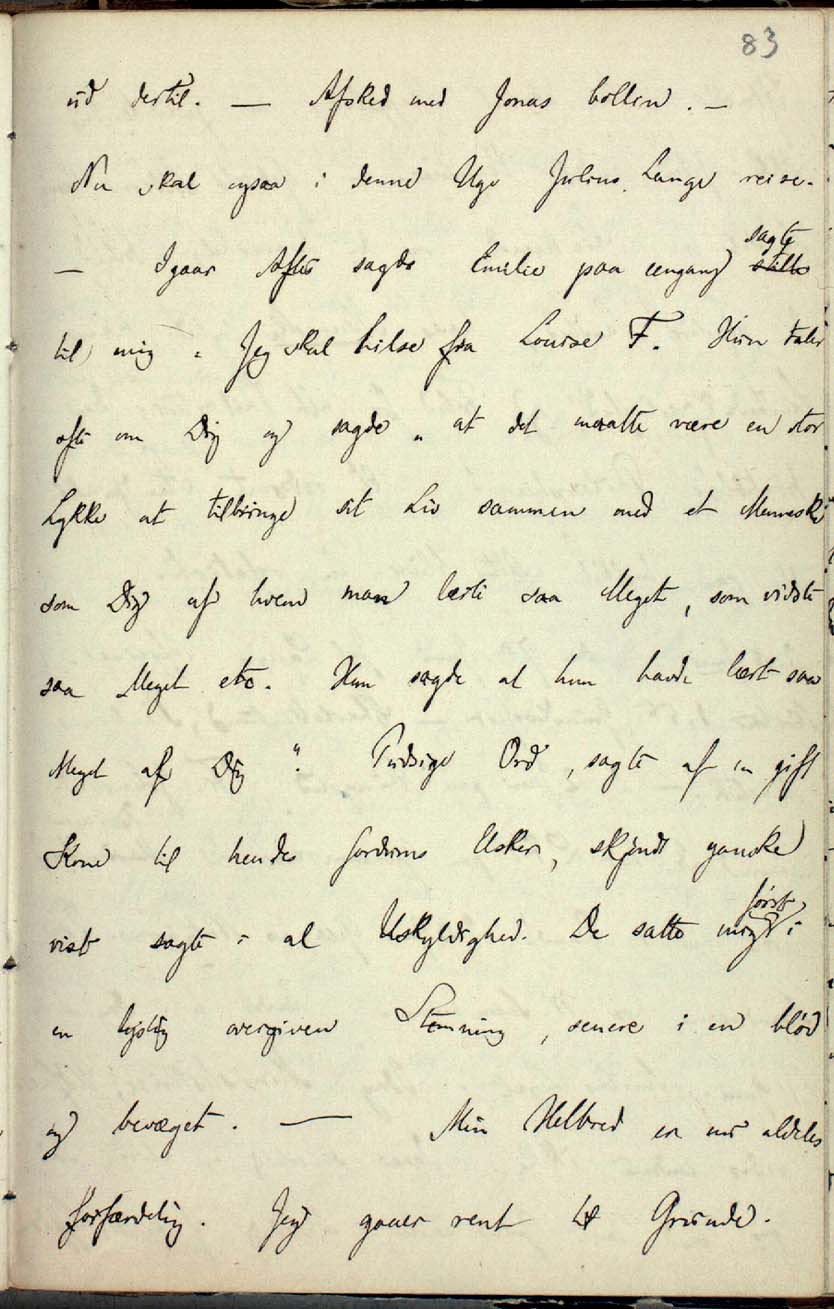 83
ud dertil. — Afsked med Jonas Collin. —
Nu skal ogsaa i denne Uge Julius Lange reise.
— Igaar Aftes sagde Emilie paa eengang sagte
til mig: Jeg skal hilse fra Louise F. Hun taler
ofte om Dig og sagde „at det maatte være en stor
Lykke at tilbringe sit Liv sammen med et Menneske
som Dig af hvem man lærte saa Meget, som vidste
saa Meget etc. Hun sagde at hun havde lært saa
Meget af Dig“. Pudsige Ord, sagte af en gift
Kone til hendes fordums Elsker, skjøndt ganske
vist sagte i al Uskyldighed. De satte mig først i
en lystig overgiven Stemning, senere i en blød
og bevæget. — Min Helbred er nu aldeles
forfærdelig. Jeg gaaer rent til Grunde.